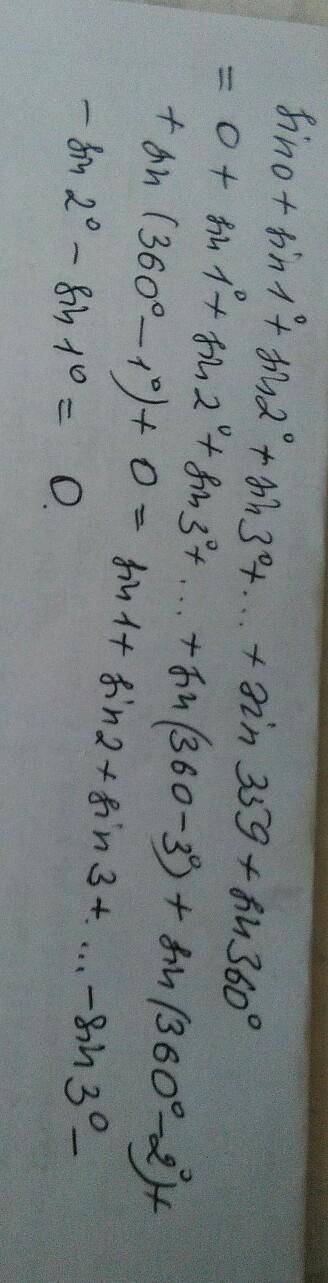 sin0 + sin1° + sin2° + sin3° + ... + sin359 + sin360°
= 0 + sin1° + sin2° + sin3° + ... + sin(360-3°) + sin(360°-2°) +
+ sin(360°-1°) + 0 = sin1 + sin2 + sin3 + ... - sin3° -
- sin2° - sin1° = 0.